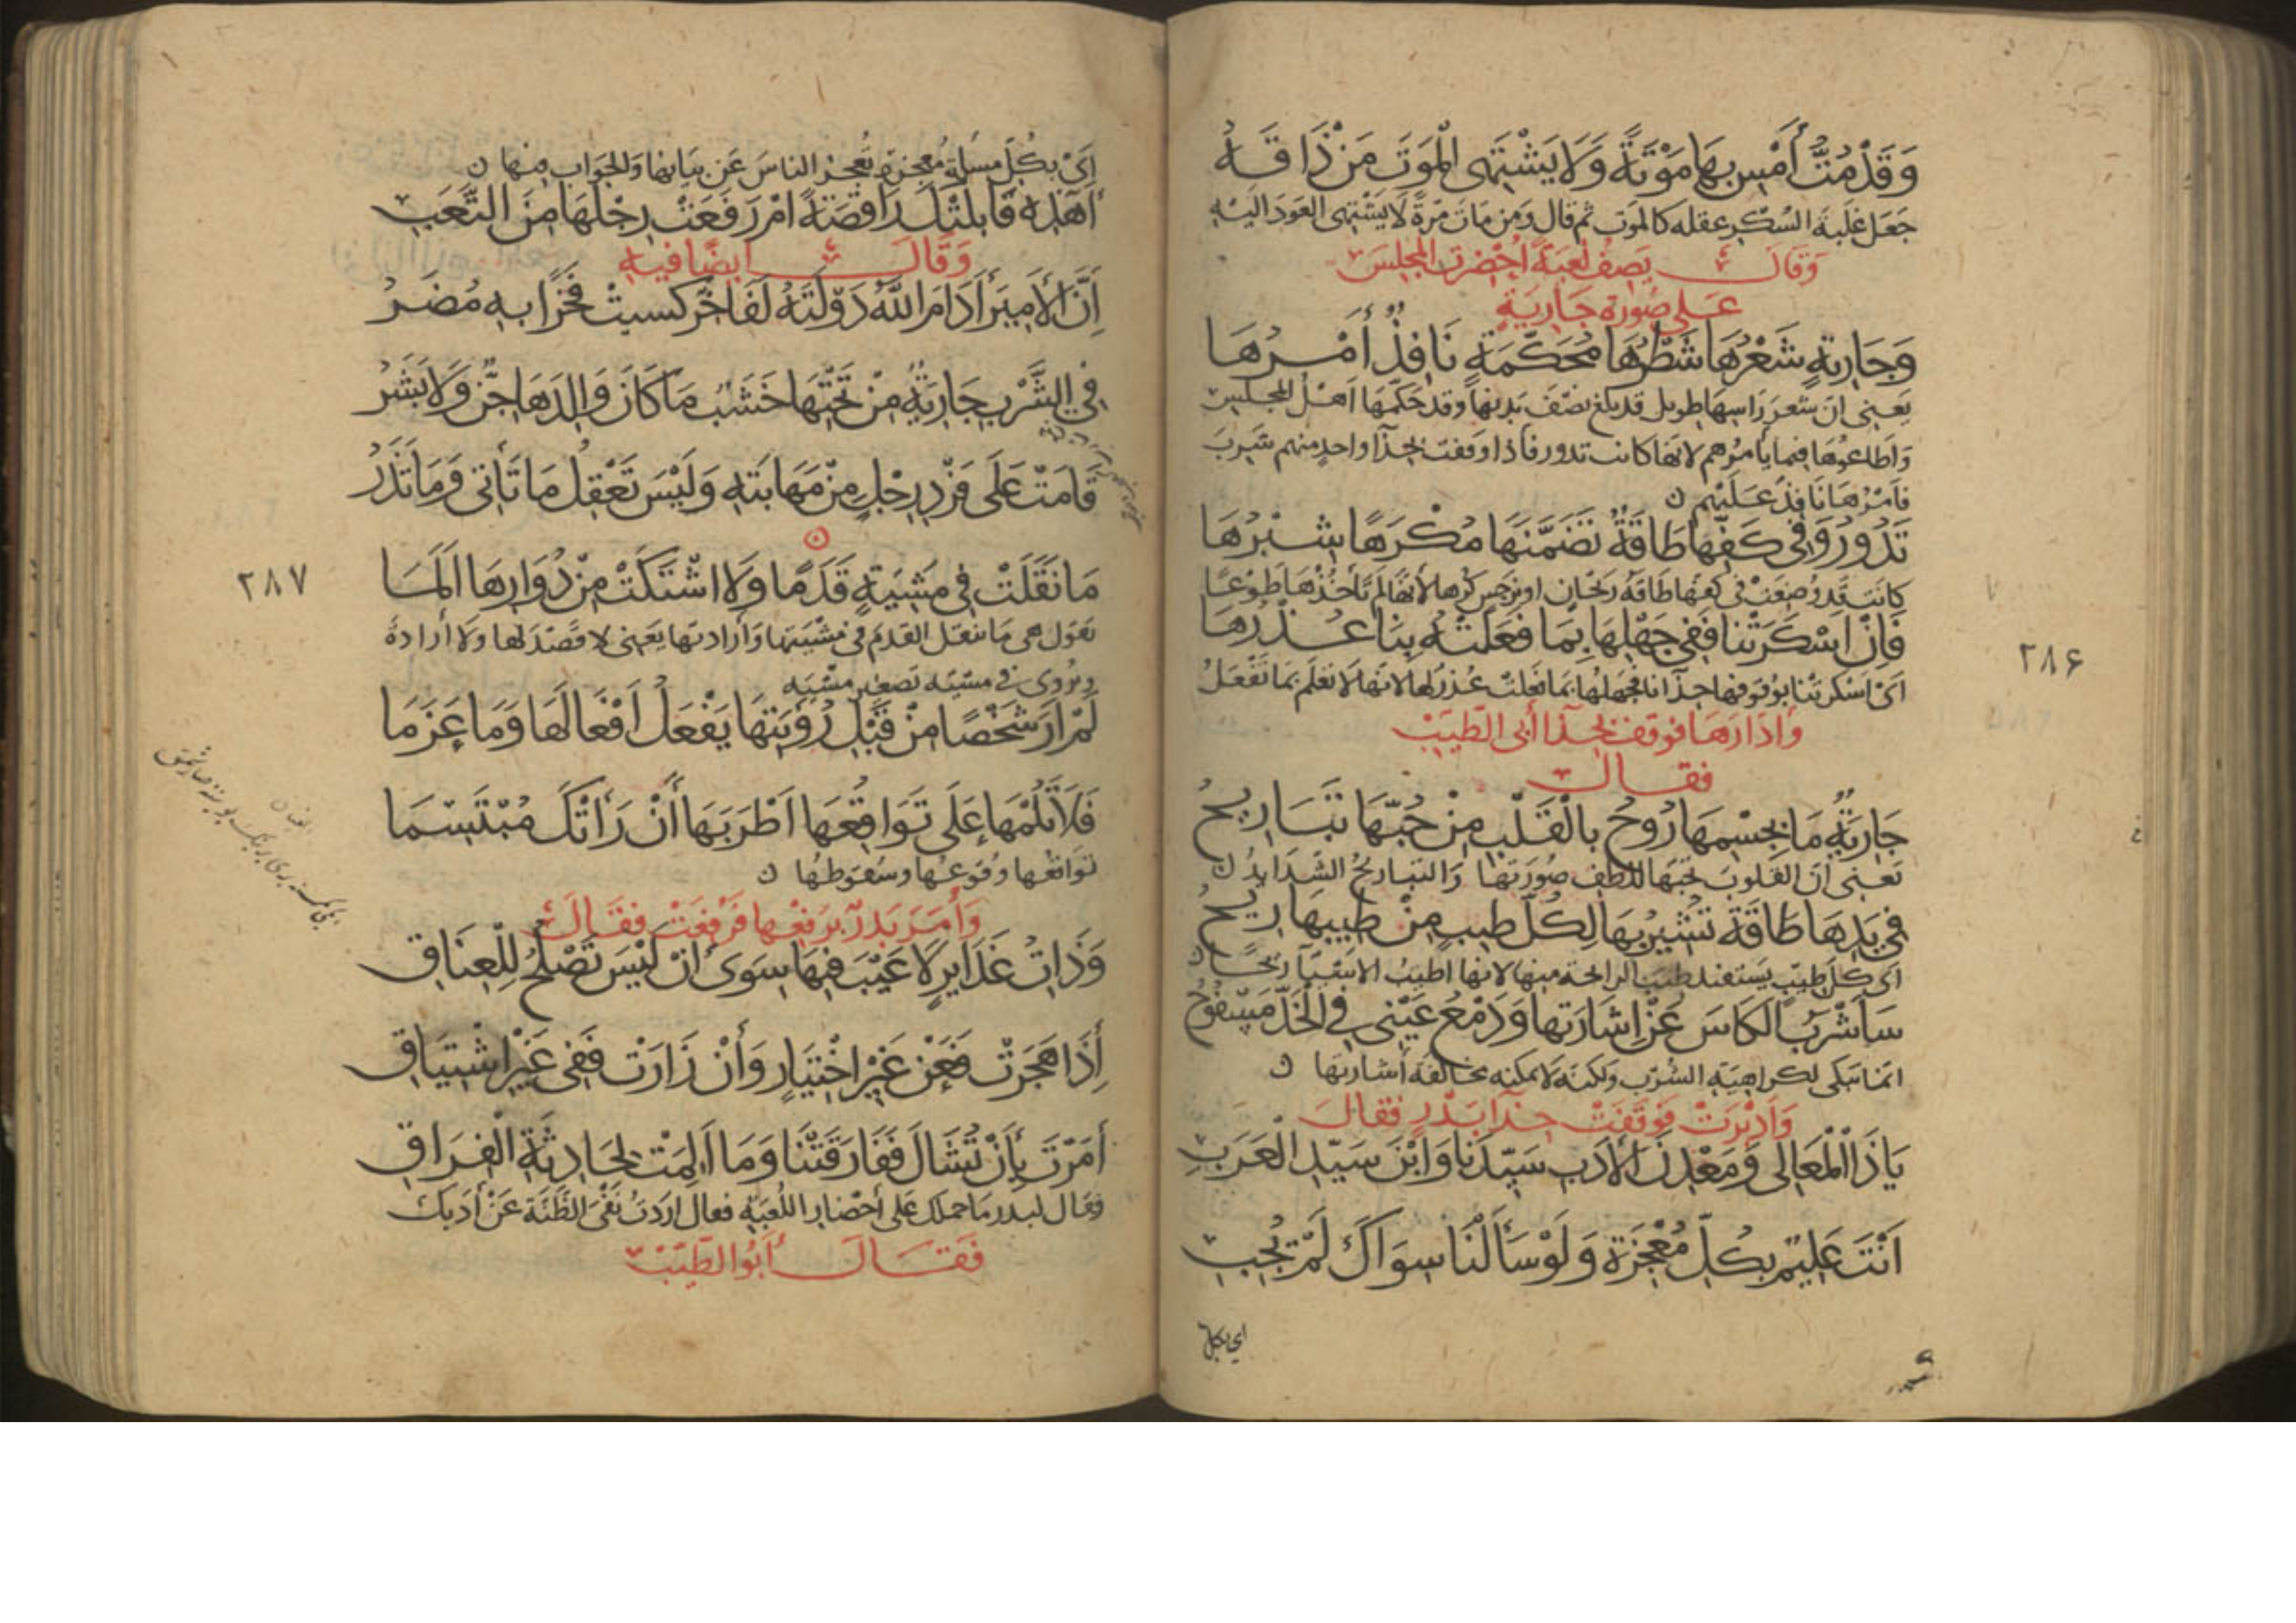 وَقَدْ مُتُّ أَمْسِ بِهَا مَوْتَةً وَلَا يَشْتَهِي الْمَوْتَ مَنْ ذَاقَهُ
جَعَل غلبة السُكر عقله كالموت ثم قال ومن مات مرة لا يشتهى العود اليه
وقال يصف لعبة احضرت المجلس
على صورة جارية
وَجَارِيَةٍ شَعْرُهَا شَطْرُهَا مُحَكَّمَةٍ نَافِذٌ أَمْرُهَا
يعنى ان شعر راسها طويل قد بلغ نصف بدنها وقد حكّمها اهل المجلس
واطاعوها فيما يأمرهم لانها كانت تدور فاذا وقفت بحذا واحد منهم شرب
فأمرها نافذ عليهم ن
تَدُورُ وَفِي كَفِّهَا طَاقَةٌ تَضَمَّنَهَا مُكْرَهًا شِبْرُهَا
كانت قد وُضعت فى كفها طاقة ريحان او نرجس كرها لانها لم تأخذها طوعا
فَإِنْ أَسْكَرَتْنَا فَفِي جَهْلِهَا بِمَا فَعَلَتْهُ بِنَا عُذْرُهَا
اى ان اسكرتنا بوقوفها حذانا فجهلها بما فعلت عذر لها لانها لا تعلم بما تفعل
وادارها فوقفت بحذا أبى الطيب
فقال
جَارِيَةٌ مَا لِجِسْمِهَا رُوحُ بِالْقَلْبِ مِنْ حُبِّهَا تَبَارِيحُ
يعنى ان القلوب تحبها للطف صورتها والتباريح الشدايد ن
فِي يَدِهَا طَاقَةٌ تُشِيرُ بِهَا لِكُلِّ طِيبٍ مِنْ طِيبِهَا رِيحُ
اى كل طيب يستفيد طيب الرائحة منها لانها اطيب الاشيآ ريحا ن
سَأَشْرَبُ الْكَاسَ عَنْ إِشَارَتِهَا وَدَمْعُ عَيْنِي فِي الْخَدِّ مَسْفُوحُ
انما تبكى لكراهية الشرب ولكنه لا يمكنه مخالفة أشارتها ن
وأديرت فوقفت حذا بدر فقال
يَا ذَا الْمَعَالِي وَمَعْدِنَ الْأَدَبِ سَيِّدَنَا وَابْنَ سَيِّدِ الْعَرَبِ
أَنْتَ عَلِيمٌ بِكُلِّ مُعْجِزَةٍ وَلَوْ سَأَلْنَا سِوَاكَ لَمْ تُجِبِ
اى بكل
٢٨۶
اى بكل مسألة معجزة يعجز الناس عن بيانها والجواب منها ن
أَهَذِهِ قَابَلَتْكَ رَاقِصَةً أَمْ رَفَعَتْ رِجْلَهَا مِنَ التَّعَبِ
وقال ايضا فيه
إِنَّ الْأَمِيرَ أَدَامَ اللهُ دَوْلَتَهُ لَفَاخِرٌ كُسِيَتْ فَخْرًا بِهِ مُضَرُ
فِي الشَّرْبِ جَارِيَةٌ مِنْ تَحْتِهَا خَشَبٌ مَا كَانَ وَالِدَهَا جِنٌّ وَلَا بَشَرُ
قَامَتْ عَلَى فَرْدِ رِجْلٍ مِنْ مَهَابَتِهِ وَلَيْسَ تَعْقِلُ مَا تَأْتِي وَمَا تَذَرُ
مَا نَقَلَتْ فِي مَشِيَّةٍ قَدَمًا وَلَا اشْتَكَتْ مِنْ دُوَارِهَا أَلَمَا
يقول هى ما تنقل القدم فى مشيتها وارادتها يعنى لا قصد لها ولا أرادة
ويُروى فى مشيّه تصغير مشيه
لَمْ أَرَ شَخْصًا مِنْ قَبْلِ رُؤْيَتِهَا يَفْعَلُ أَفْعَالَهَا وَمَا عَزَمَا
فَلَا تَلُمْهَا عَلَى تَوَاقُعِهَا أَطْرَبَهَا أَنْ رَأَتْكَ مُبْتَسِمَا
تواقعها وقوعها وسقوطها ن
وأمر بدر برفعها فرفعت فقال
وَذَاتُ غَدَايِرٍ لَا عَيْبَ فِيهَا سِوَى أَنْ لَيْسَ تَصْلُحُ لِلْعِنَاقِ
إِذَا هَجَرَتْ فَعَنْ غَيْرِ اخْتِيَارٍ وَأَنْ زَارَتْ فَفِي غَيْرِ اشْتِيَاقِ
أَمَرْتَ بِأَنْ تُشَالَ فَفَارَقَتْنَا وَمَا أَلِمَتْ لِحَادِثَةِ الْفِرَاقِ
وقال لبدر ما حملك على أحضار اللعبة فقال اردت نفى الظنة عن أدبك
فقال أبو الطيب
٢٨٧